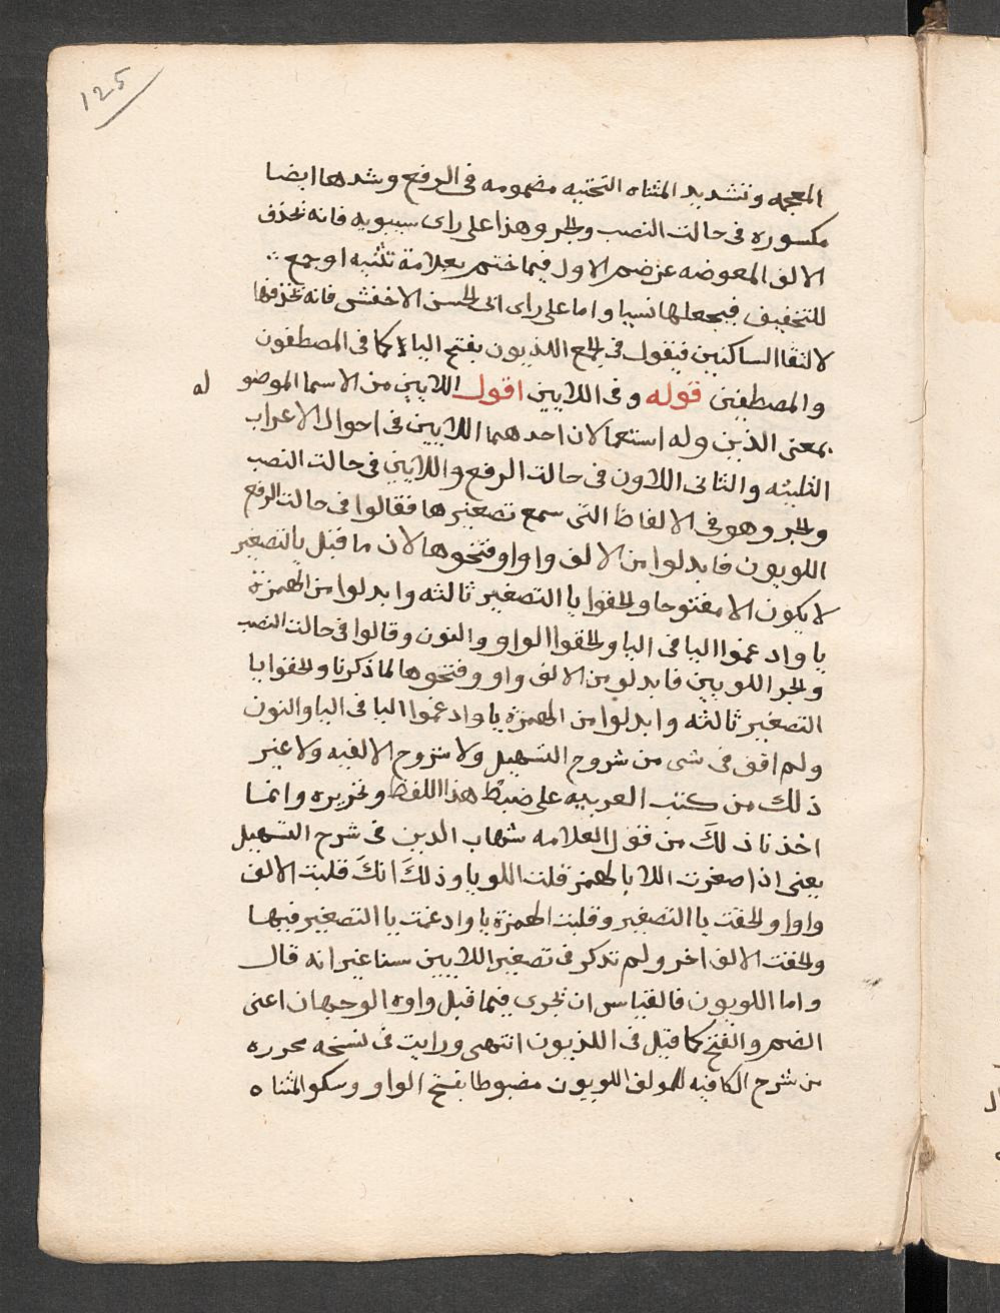 125
المعجمه وتشديد المثناه التحتيه مضمومه فى الرفع وشدها ايضا
مكسوره فى حالت النصب والجر وهذا على راى سيبويه فانه تحذف
الالف المعوضه عن ضم الاول فيما ختم بعلامة تثنيه او جمع
للتخفيف فيجعلها نسيا واما على راى ابى الحسن الاخفش فانه تحذفها
لالتقا الساكنين فيقول فى الجمع اللذيون بفتح الياء كما فى المصطفون
والمصطفين قوله وفى اللايين اقول اللايين من الاسما الموضو له
بمعنى الذين وله استعمالان احدهما اللايين فى احوال الاعراب
الثلثه والثانى اللاون فى حالت الرفع واللايين فى حالت النصب
والجر وهو فى الالفاظ التى سمع تصغيرها فقالوا فى حالت الرفع
اللويون فابدلوا من الالف واوا وفتحوها لان ما قبل يا التصغير
لا يكون الا مفتوحا والحقوا يا التصغير ثالثه وابدلوا من الهمزة
يا وادغموا اليا فى اليا والحقوا الواو والنون وقالوا فى حالت النصب
والجر اللويين فابدلو من الالف واو وفتحوها لما ذكرنا والحقوا يا
التصغير ثالثه وابدلوا من الهمزة يا وادغموا اليا فى اليا والنون
ولم اقف فى شى من شروح التسهيل ولا شروح الالفيه ولا غير
ذلك من كتب العربيه على ضبط هذا اللفظ وتحريره وانما
اخذنا ذلك من قول العلامه شهاب الدين فى شرح التسهيل
يعنى اذا صغرت اللا بالهمز قلت اللويا وذلك انك قلبت الالف
واوا والحقت يا التصغير وقلبت الهمزة يا وادغمت يا التصغير فيها
والحقت الالف اخر ولم تذكر فى تصغير اللايين سنا غير انه قال
واما اللويون فالقياس ان تجرى فيما قبل واوه الوجهان اعنى
الضم والفتح كما قيل فى اللذيون انتهى ورايت فى نسخه محرره
من شرح الكافيه للمولف اللويون مضبوطا بفتح الواو وسكو المثناه